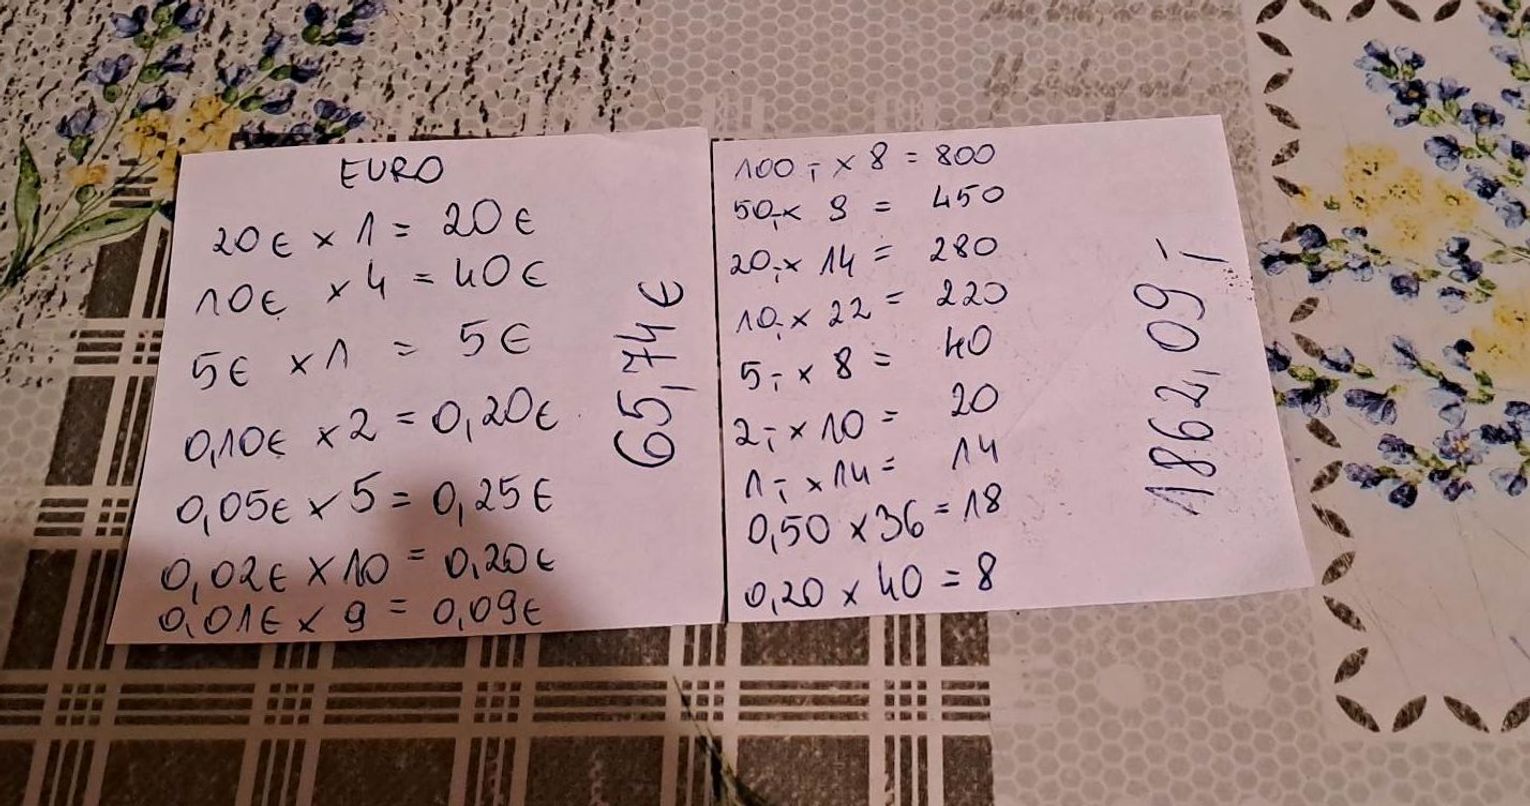 EURO
20€ x 1 = 20€
10€ x 4 = 40€
5€ x 1 = 5€
0,10€ x 2 = 0,20€
0,05€ x 5 = 0,25€
0,02€ x 10 = 0,20€
0,01€ x 9 = 0,09€
65,74€
100,- x 8 = 800
50,- x 9 = 450
20,- x 14 = 280
10,- x 22 = 220
5,- x 8 = 40
2,- x 10 = 20
1,- x 14 = 14
0,50 x 36 = 18
0,20 x 40 = 8
1862,09,-